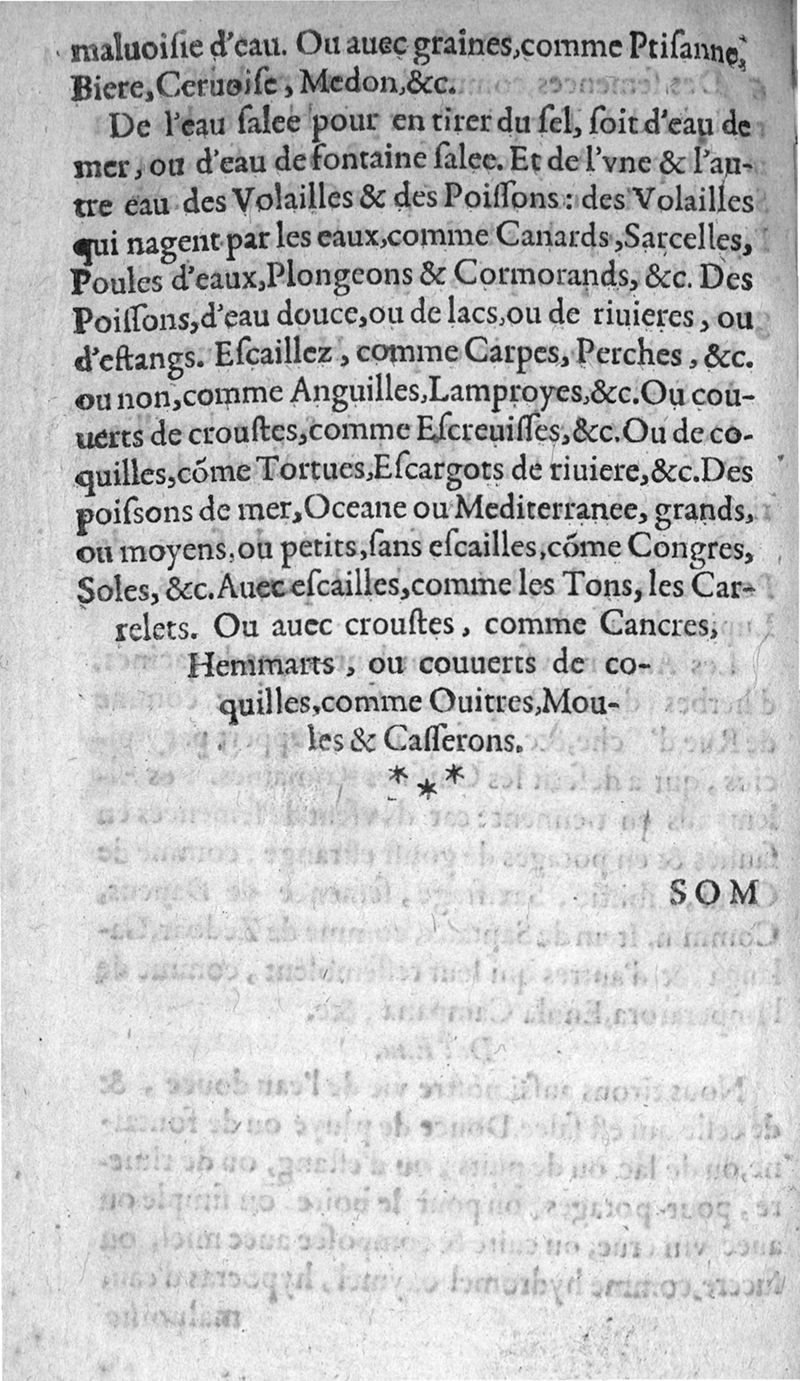 maluoiſie d'eau. Ou auec graines,comme Ptiſanne,
Biere,Ceruoiſe, Medon,&c.
De l'eau ſalee pour en tirer du ſel, ſoit d'eau de
mer, ou d'eau de fontaine ſalee. Et de l'vne & l'au-
tre eau des Volailles & des Poiſſons: des Volailles
qui nagent par les eaux,comme Canards,Sarcelles,
Poules d'eaux,Plongeons & Cormorands, &c. Des
Poiſſons,d'eau douce,ou de lacs,ou de riuieres, ou
d'eſtangs. Eſcaillez, comme Carpes, Perches, &c.
ou non,comme Anguilles,Lamproyes,&c.Ou cou-
uerts de crouſtes,comme Eſcreuiſſes,&c.Ou de co-
quilles,cõme Tortues,Eſcargots de riuiere,&c.Des
poiſsons de mer,Oceane ou Mediterranee, grands,
ou moyens,ou petits,ſans eſcailles,cõme Congres,
Soles, &c.Auec eſcailles,comme les Tons, les Car-
relets. Ou auec crouſtes, comme Cancres,
Hemmarts, ou couuerts de co-
quilles,comme Ouitres,Mou-
les & Caſſerons.
* * *
SOM